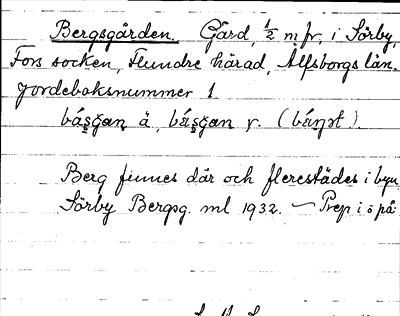 Bergsgården. Gård, 1/2 m fr. i Sörby,
Fors socken, Flundre härad, Älfsborgs län.
Jordeboksnummer 1
ä, r.
Berg finnes där och flerestädes i byn
Sörby Bergsg. ml 1932. — Prep i ö på